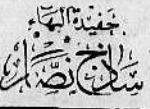 حفيدة البهاء
ساذج نصار